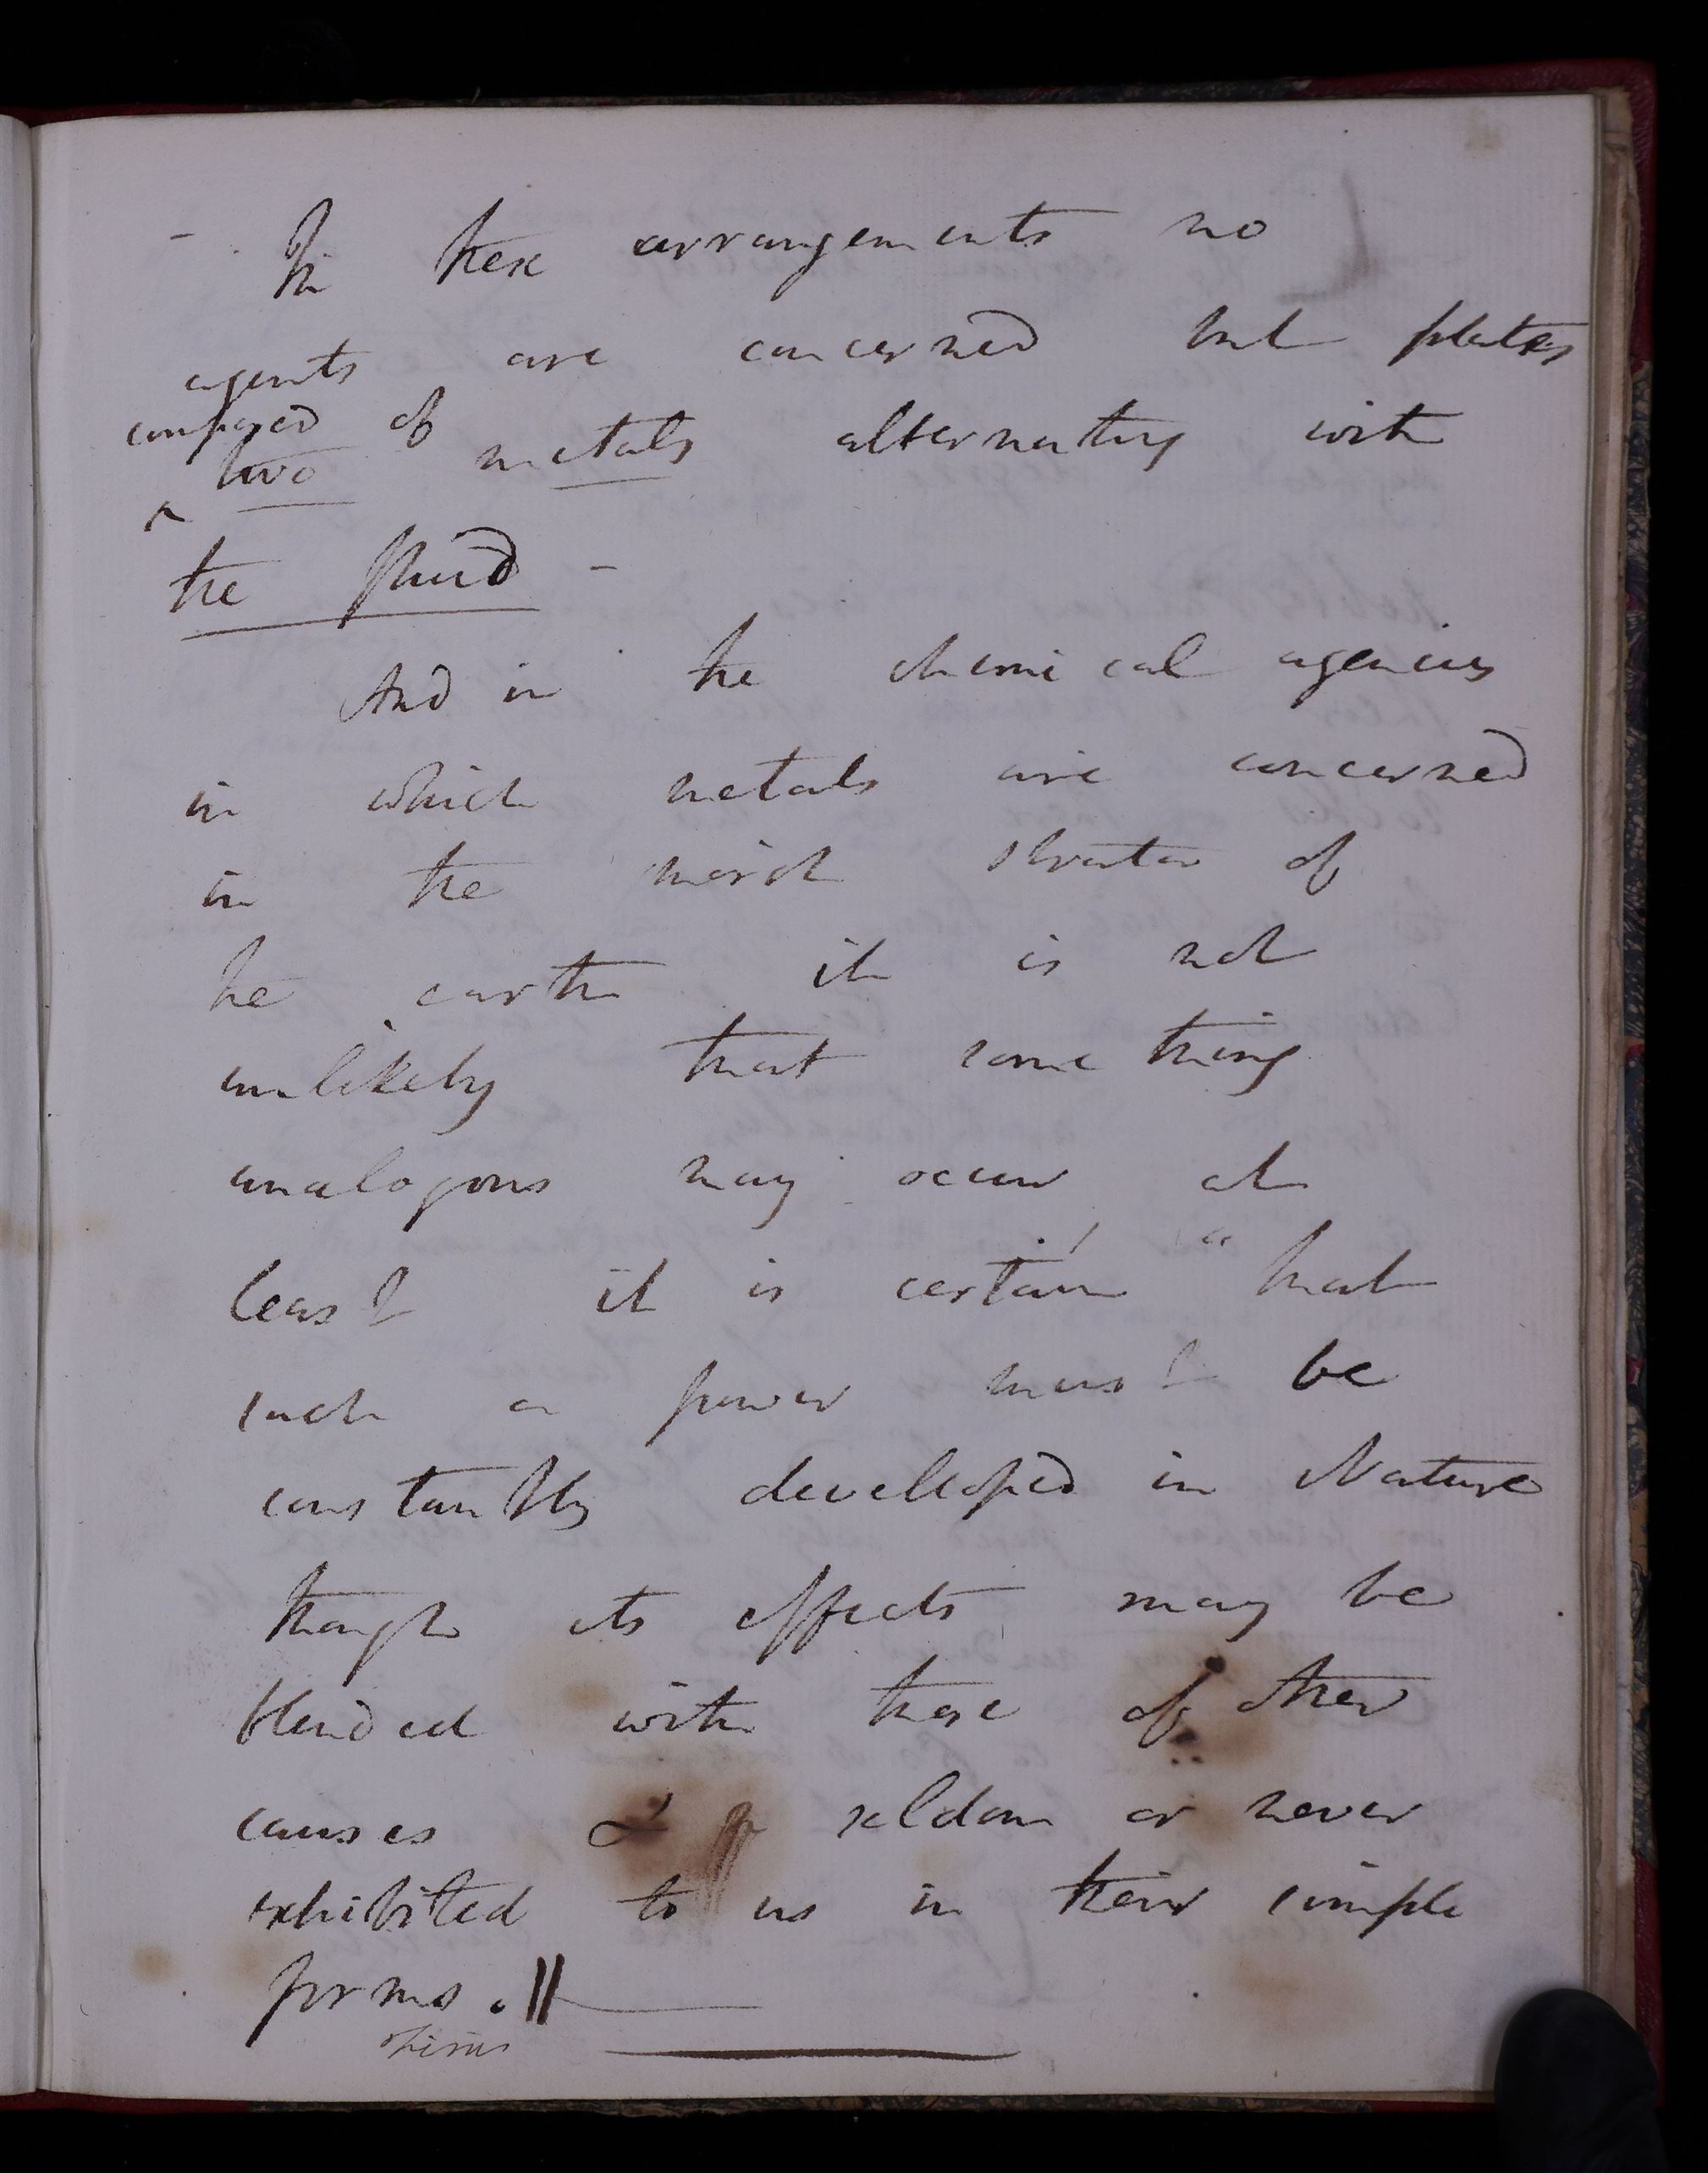 - In these arrangements no
agents are concerned but plates
composed of
^ two metals alternating with
the fluid -
And in the chemical agencies
in which metals are concerned
in the moist strata of
the earth it is not
unlikely that some thing
analogous may occur at
least it is certain that
such a power must be
constantly developed in Nature
though its effects may be
blended with those of other
causes & seldom or never
exhibited to us in their simple
forms. ||